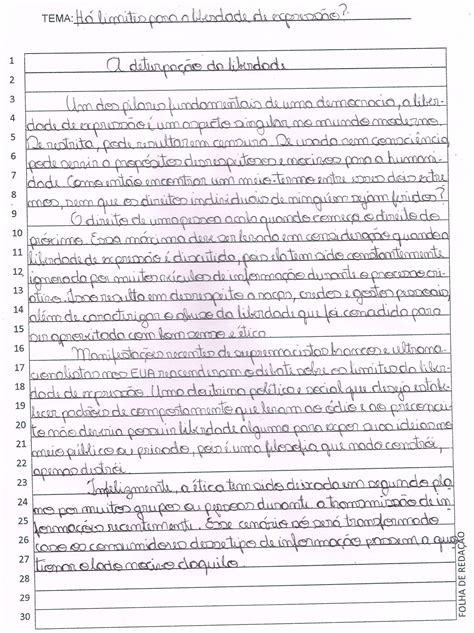 TEMA: Há limites para a liberdade de expressão?
1
A deturpação da liberdade
2
3 Um dos pilares fundamentais de uma democracia, a liber-
4 dade de expressão é um aspecto singular no mundo moderno.
5 Se restrita, pode resultar em censura. Se usada sem consciência
6 pode servir a propósitos desrespeitosos e nocivos para a humani-
7 dade. Como então encontrar um meio-termo entre esses dois extre-
8 mos, sem que os direitos individuais de ninguém sejam feridos?
9 O direito de uma pessoa acaba quando começa o direito do
10 próximo. Essa máxima deve ser levada em consideração quando a
11 liberdade de expressão é discutida, pois ela tem sido constantemente
12 ignorada por muitos veículos de informação durante o processo cri-
13 ativo. Isso resulta em desrespeito a raças, credos e gostos pessoais,
14 além de caracterizar o abuso da liberdade que foi concedida para
15 ser aproveitada com bom senso e ética.
16 Manifestações recentes de supremacistas brancos e ultrana-
17 cionalistas nos EUA reacenderam o debate sobre os limites da liber-
18 dade de expressão. Uma doutrina política e social que deseja estabe-
19 lecer padrões de comportamento que levam ao ódio e ao preconcei-
20 to não deveria possuir liberdade alguma para expor suas ideias no
21 meio público ou privado, pois é uma filosofia que nada constrói,
22 apenas destrói.
23 Infelizmente, a ética tem sido deixada em segundo pla-
24 no por muitos grupos ou pessoas durante a transmissão de in-
25 formações recentemente. Esse cenário só será transformado
26 caso os consumidores desse tipo de informação passem a ques-
27 tionar o lado nocivo daquilo.
28
29
30
FOLHA DE REDAÇÃO